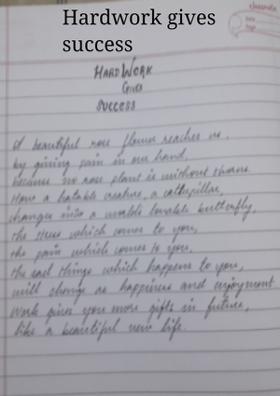 Hardwork gives
success
classmate
Date
Page
HARDWORK
GIVES
SUCCESS
A beautiful rose flower reaches us,
by giving pain in our hand,
because no rose plant is without thorns.
How a hatable creature, a catterpillar,
changes into a lovable butterfly,
the stress which comes to you,
the pain which comes to you,
the sad things which happens to you,
will change as happiness and enjoyment
Work gives you more gifts in future,
like a beautiful new life.